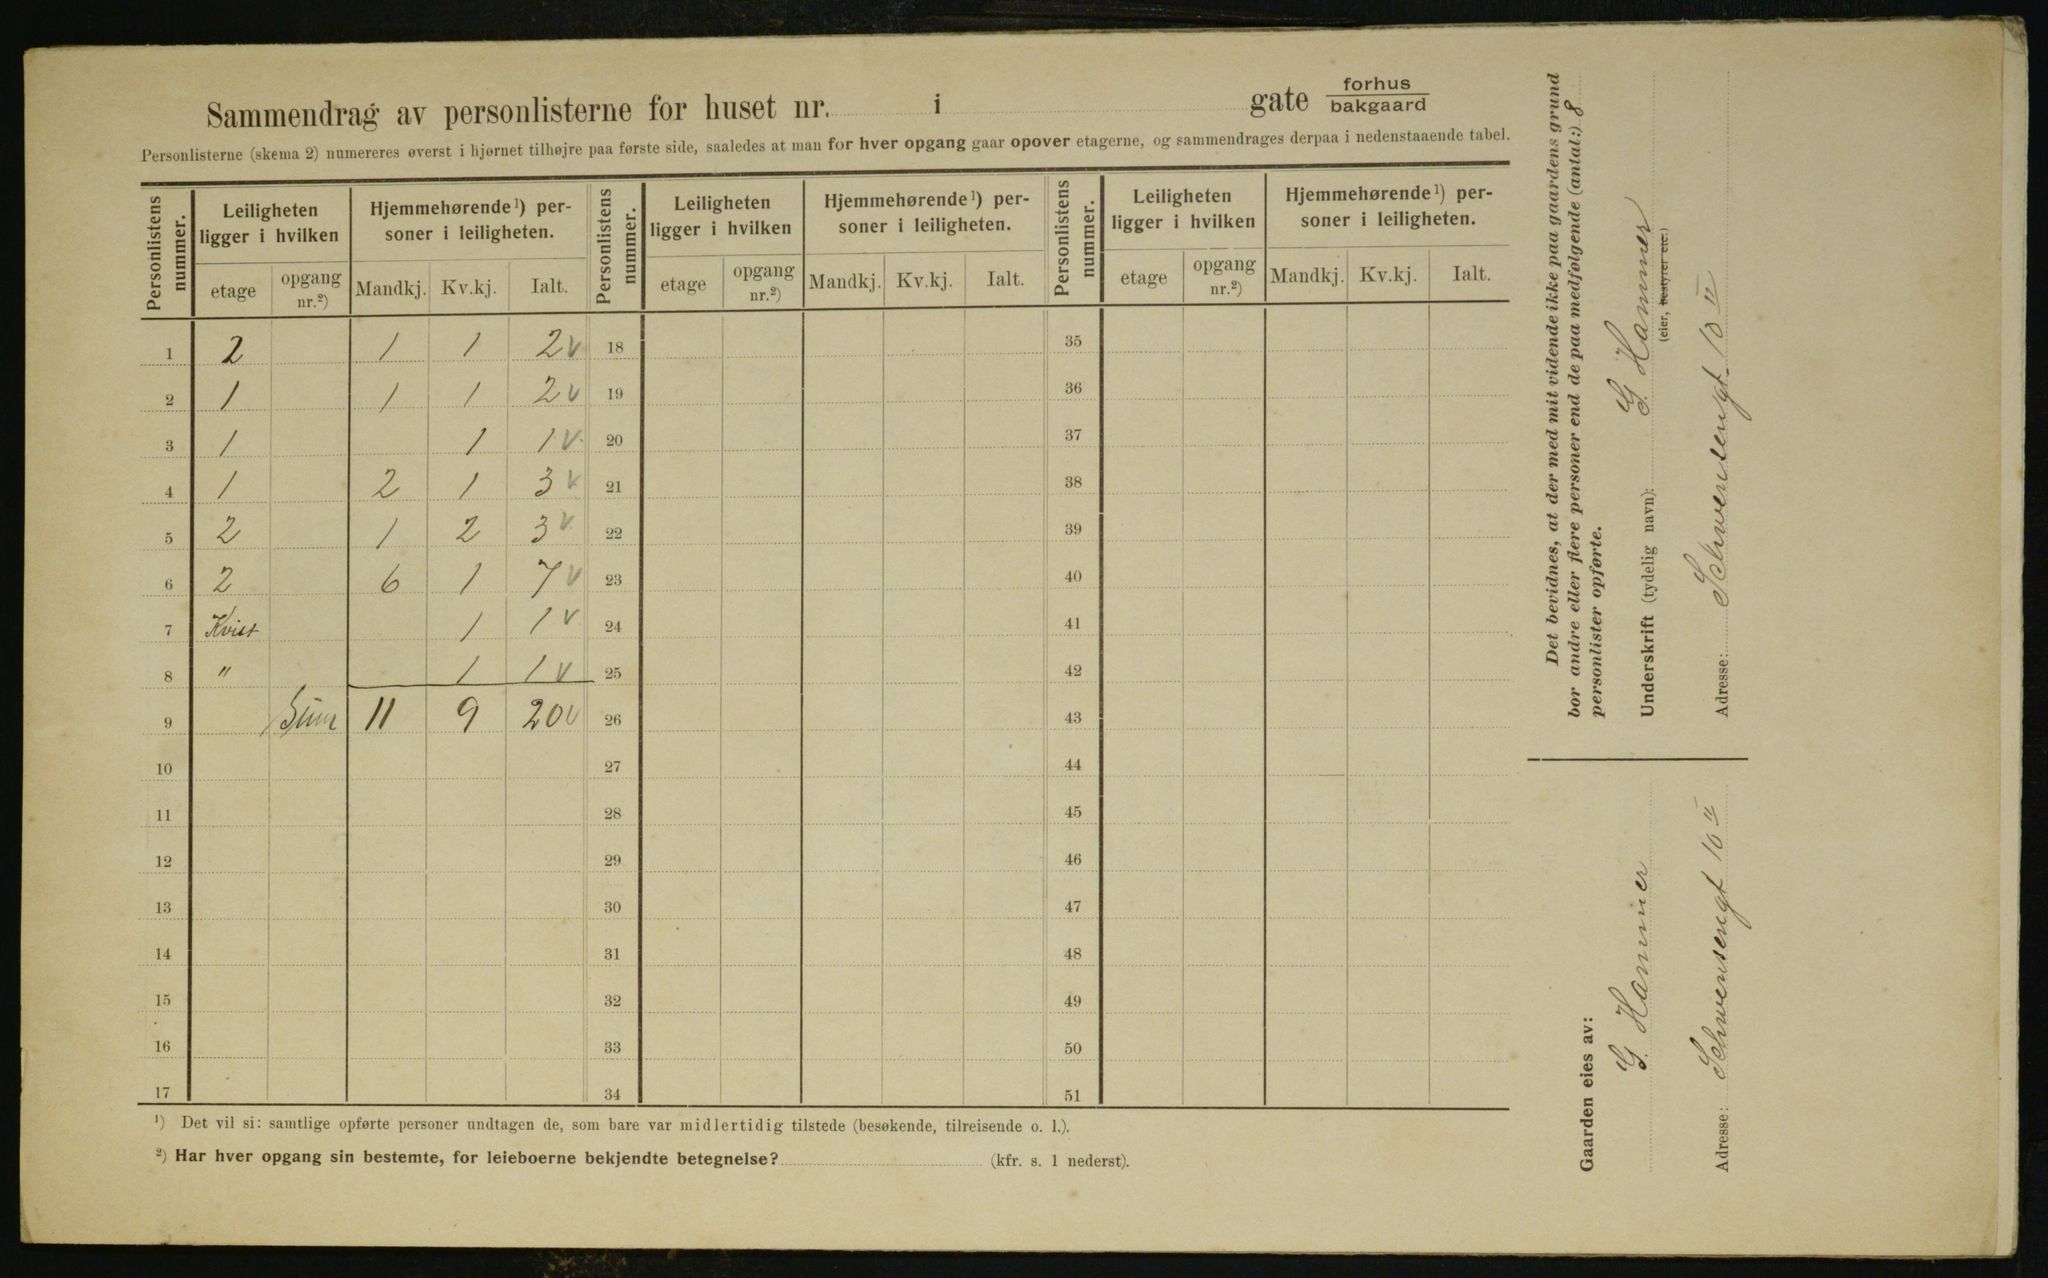 Sammendrag av personlisterne for huset nr. i gate forhus
bakgaard
Personlisterne (skema 2) numereres øverst i hjørnet tilhøjre paa første side, saaledes at man for hver opgang gaar opover etagerne, og sammendrages derpaa i nedenstaaende tabel.
Personlistens nummer. Leiligheten ligger i hvilken Hjemmehørende ¹) personer i leiligheten. Personlistens nummer. Leiligheten ligger i hvilken Hjemmehørende ¹) personer i leiligheten. Personlistens nummer. Leiligheten ligger i hvilken Hjemmehørende ¹) personer i leiligheten.
etage opgang nr.²) Mandkj. Kv.kj. Ialt. etage opgang nr.²) Mandkj. Kv.kj. Ialt. etage opgang nr.²) Mandkj. Kv.kj. Ialt.
1 2 1 1 2 v 18 35
2 1 1 1 2 v 19 36
3 1 1 1 v 20 37
4 1 2 1 3 v 21 38
5 2 1 2 3 v 22 39
6 2 6 1 7 v 23 40
7 Kvist 1 1 v 24 41
8 " 1 1 v 25 42
9 Sum 11 9 20 v 26 43
10 27 44
11 28 45
12 29 46
13 30 47
14 31 48
15 32 49
16 33 50
17 34 51
¹) Det vil si: samtlige opførte personer undtagen de, som bare var midlertidig tilstede (besøkende, tilreisende o. l.).
²) Har hver opgang sin bestemte, for leieboerne bekjendte betegnelse? (kfr. s. 1 nederst).
Det bevidnes, at der med mit vidende ikke paa gaardens grund
bor andre eller flere personer end de paa medfølgende (antal:) 8
personlister opførte.
Underskrift (tydelig navn): G Hammer
(eier, bestyrer etc.)
Adresse: Schwensengt. 10 II
Gaarden eies av:
G. Hammer
Adresse: Schwensengt 10 II